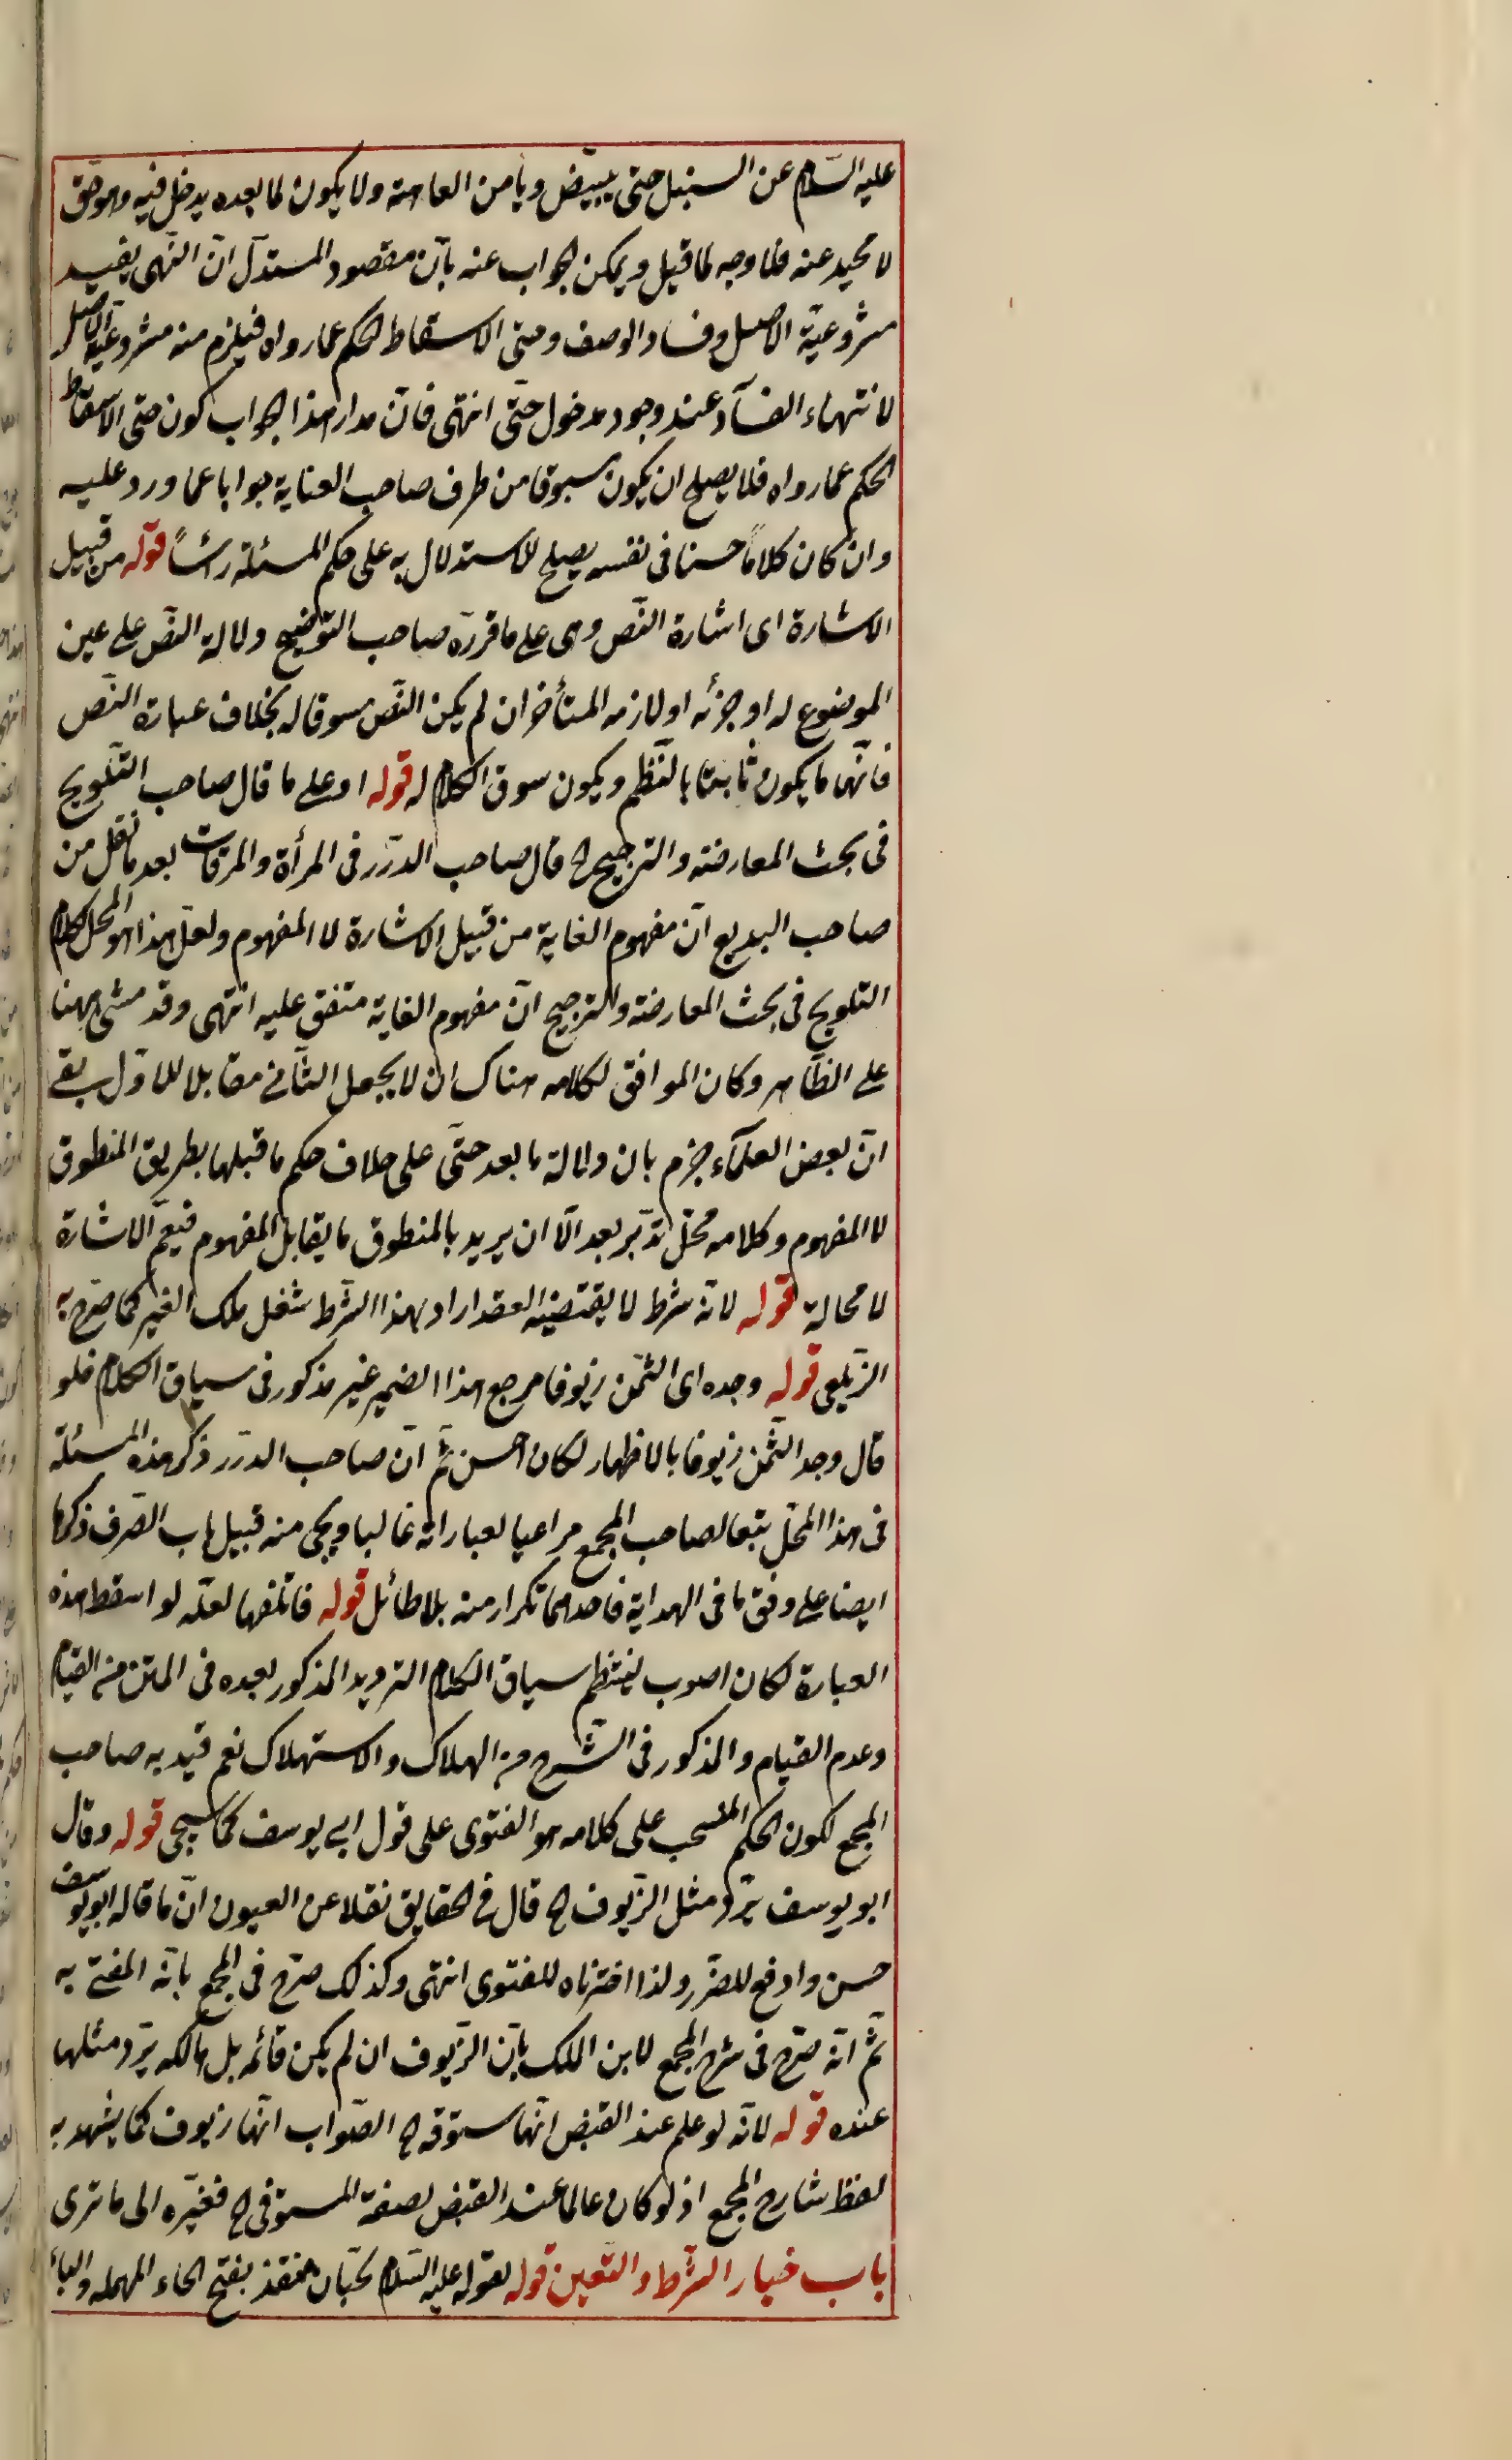 عليه السّلام عن السنبل حتى يبيّض ويأمن العاهة ولا يكون لما بعده يدخل فيه وهو حق
لا محيد عنه فلا وجه لما قيل ويمكن الجواب عنه بانّ مقصود المستدلّ انّ النّهى يفيد
مشروعيّة الاصل وفساد الوصف وحتى الاسقاط الحكم عما رواه فيلزم منه مشروعية الاصل
لانتهاء الفساد عند وجود مدخول حتّى انتهى فانّ مدار هذا الجواب كون حتى الاسقاط
الحكم عما رواه فلا يصلح ان يكون مسوقا من طرف صاحب العناية جوابا عما ورد عليه
وان كان كلاماً حسنا فى نفسه يصلح للاستدلال به على حكم المسئلة رأساً قوله من قبيل
الاشارة اى اشارة النّص وهى على ما قرره صاحب التّوضيح دلالة النّص على عين
الموضوع له او جزئه او لازمه المتأخر ان لم يكن النّص مسوقا له بخلاف عبارة النّص
فانّها ما يكون ثابتا بالنّظم ويكون سوق الكلام له قوله او على ما قال صاحب التّلويح
فى بحث المعارضة والترجيح الخ قال صاحب الدّرر فى المرأة والمرقات بعد ما نقل من
صاحب البديع انّ مفهوم الغاية من قبيل الاشارة لا المفهوم ولعلّ هذا هو المحل لكلام
التلويح فى بحث المعارضة والترجيح انّ مفهوم الغاية متفق عليه انتهى وقد مشى ههنا
على الظّاهر وكان الموافق لكلامه هناك ان لا يجعل الثّانى مقابلا للاوّل بقى
انّ بعض العلمآء جزم بان دلالة ما بعد حتّى على خلاف حكم ما قبلها بطريق المنطوق
لا المفهوم وكلامه محلّ تدبّر بعد الّا ان يريد بالمنطوق ما يقابل المفهوم فيعمّ الاشارة
لا محالة قوله لانّه شرط لا يقتضيه العقد اراد بهذا الشّرط شغل ملك الغير كما صرّح به
الزّيلعى قوله وجده اى الثّمن زيوفا مرجع هذا الضمير غير مذكور فى سياق الكلام فلو
قال وجد الثّمن زيوفا بالاظهار لكان احسن ثمّ انّ صاحب الدّرر ذكر هذه المسئلة
فى هذا المحلّ تبعا لصاحب المجمع مراعيا لعباراته غالبا ويجئ منه قبيل باب الصّرف ذكرها
ايضا على وفق ما فى الهداية فاحدهما تكرار منه بلا طائل قوله فاتلفها لعلّه لو اسقط هذه
العبارة لكان اصوب لينتظم سياق الكلام الترديد المذكور بعده فى المتن من القيام
وعدم القيام والمذكور فى الشّرح من الهلاك والاستهلاك نعم قيد به صاحب
المجمع لكون الحكم المنسحب على كلامه هو الفتوى على قول ابى يوسف كما سيجئ قوله وقال
ابو يوسف يردّ مثل الزّيوف الخ قال فى الحقايق نقلا عن العيون انّ ما قاله ابو يوسف
حسن وادفع للضّرر ولذا اخترناه للفتوى انتهى وكذلك صرّح فى المجمع بانّه المفتى به
ثمّ انّه صرّح فى شرح المجمع لابن الملك بانّ الزّيوف ان لم يكن قائمه بل هالكه يردّ مثلها
عنده قوله لانّه لو علم عند القبض انّها ستوقه الخ الصّواب انّها زيوف كما يشهد به
لفظ شارح المجمع اذ لو كان عالما عند القبض لصفة المستوفى الخ فغيّره الى ما ترى
باب خيار الشّرط والتّعيين قوله لقوله عليه السّلام لحبّان بن منقذ بفتح الحاء المهمله والبأ